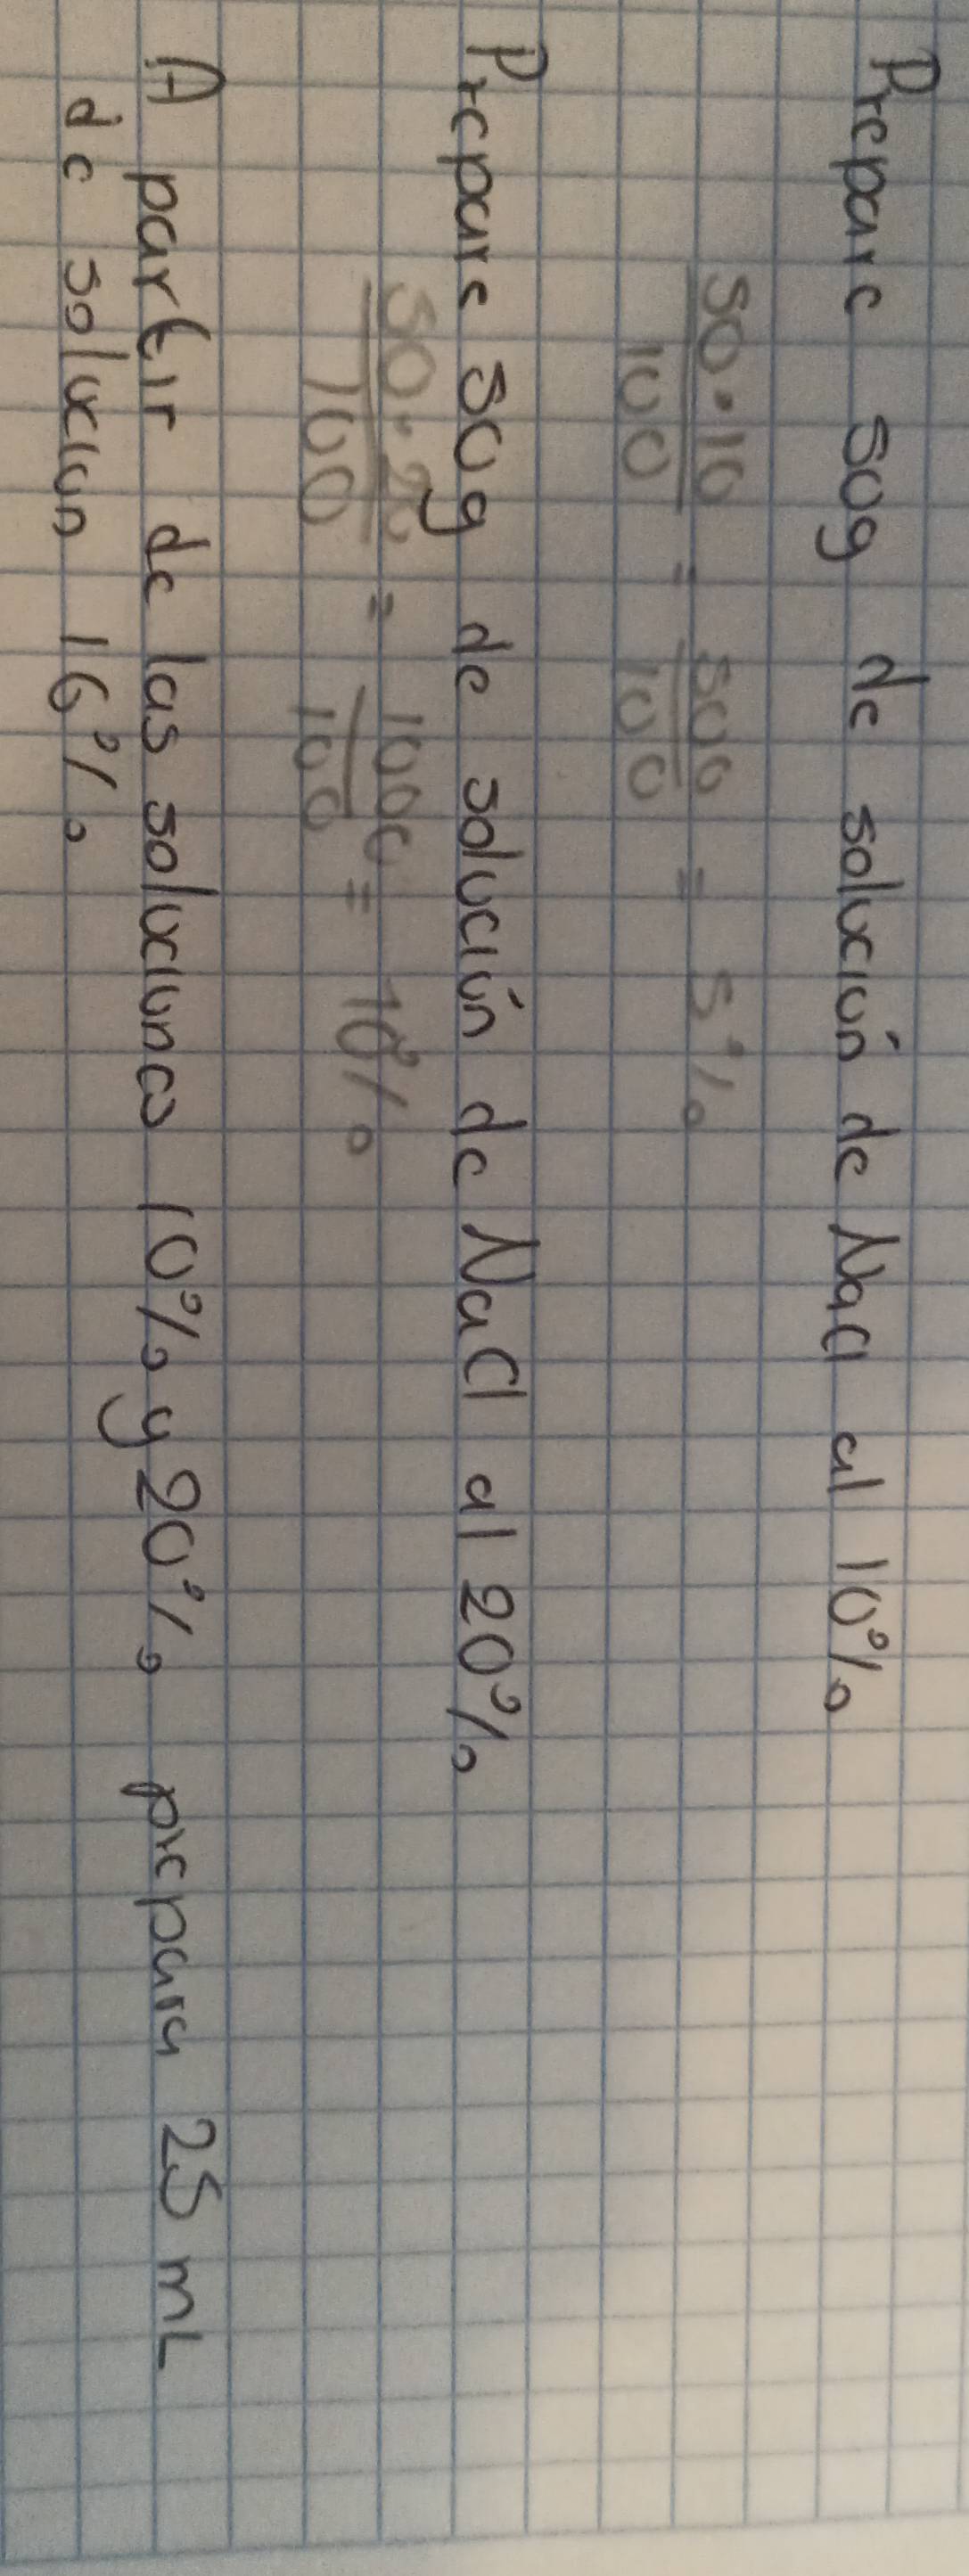 Prepare 50g de solución de NaCl al 10%
50·10/100 = 500/100 = 5%
Prepare 50g de solución de NaCl al 20%
50·20/100 = 1000/100 = 10%
A partir de las soluciones 10% y 20% prepara 25 mL
de solucion 16%